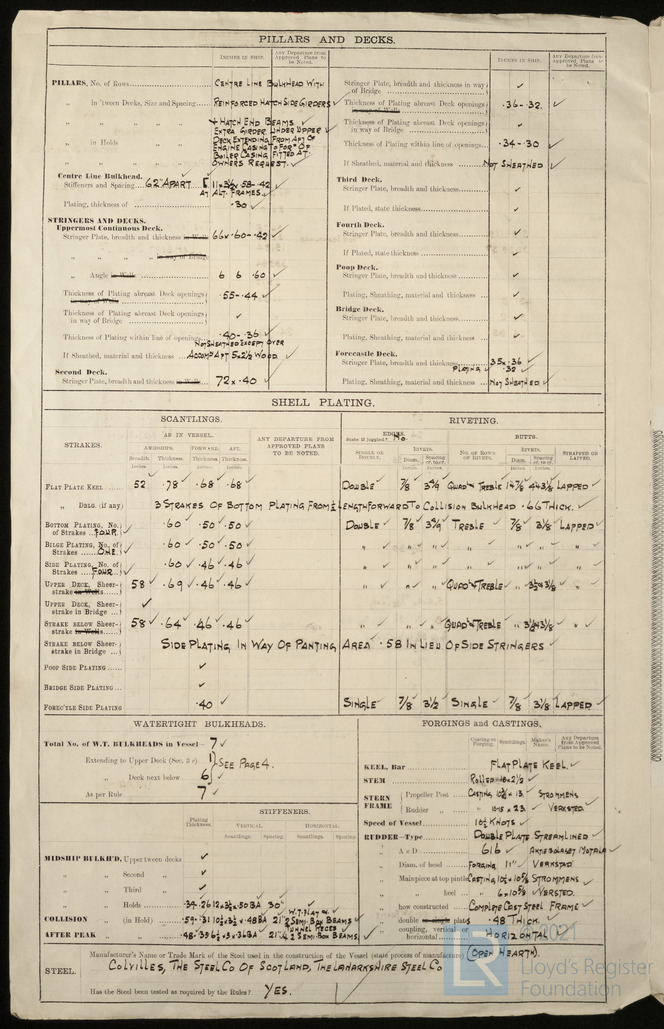 PILLARS AND DECKS.
INCHES IN SHIP.
Any Departure from Approved Plans to be Noted.
PILLARS, No. of Rows CENTRE LINE BULKHEAD WITH
„ in 'tween Decks, Size and Spacing REINFORCED HATCH SIDE GIRDERS ✓
„ „ „ „ + HATCH END BEAMS.
EXTRA GIRDER UNDER UPPER
„ in Holds DECK EXTENDING FROM AFT OF
ENGINE CASING TO FOR^D OF
BOILER CASING FITTED AT
OWNERS REQUEST. ✓
Centre Line Bulkhead.
Stiffeners and Spacing 62" APART. 11 x 3½ x .58-.42
AT ALT. FRAMES.
Plating, thickness of .30 ✓
STRINGERS AND DECKS.
Uppermost Continuous Deck.
Stringer Plate, breadth and thickness in Wells 66 x .60-.42 ✓
„ „ „ in way of Bridge
„ Angle in Wells 6 6 .60 ✓
Thickness of Plating abreast Deck openings in way of Wells .55-.44 ✓
Thickness of Plating abreast Deck openings in way of Bridge ✓
Thickness of Plating within line of openings .40-.36 ✓
NOT SHEATHED EXCEPT OVER
If Sheathed, material and thickness ACCOM^D AFT 5 x 2½ WOOD.
Second Deck.
Stringer Plate, breadth and thickness in Wells 72 x .40 ✓
INCHES IN SHIP.
Any Departure from Approved Plans to be Noted.
Stringer Plate, breadth and thickness in way of Bridge ✓
Thickness of Plating abreast Deck openings .36-.32. ✓
Thickness of Plating abreast Deck openings in way of Bridge ✓
Thickness of Plating within line of openings .34-.30 ✓
If Sheathed, material and thickness NOT SHEATHED ✓
Third Deck.
Stringer Plate, breadth and thickness ✓
If Plated, state thickness ✓
Fourth Deck.
Stringer Plate, breadth and thickness ✓
If Plated, state thickness ✓
Poop Deck.
Stringer Plate, breadth and thickness ✓
Plating, Sheathing, material and thickness ✓
Bridge Deck.
Stringer Plate, breadth and thickness ✓
Plating, Sheathing, material and thickness ✓
Forecastle Deck.
Stringer Plate, breadth and thickness 35 x .36 ✓
PLATING .32 ✓
Plating, Sheathing, material and thickness NOT SHEATHED ✓
SHELL PLATING.
SCANTLINGS.
RIVETING.
STRAKES.
AS IN VESSEL.
AMIDSHIPS. FORWARD. AFT.
Breadth. Thickness. Thickness. Thickness.
Inches Inches Inches Inches
ANY DEPARTURE FROM APPROVED PLANS TO BE NOTED.
EDGES. State if joggled? No.
SINGLE OR DOUBLE.
RIVETS. Diam. Spacing cr. to cr.
BUTTS.
NO. OF ROWS OF RIVETS.
RIVETS. Diam. Spacing cr. to cr.
STRAPPED OR LAPPED.
FLAT PLATE KEEL 52 ✓ .78 ✓ .68 ✓ .68 ✓ DOUBLE ✓ 7/8
„ DBLG. (if any) 3 STRAKES OF BOTTOM PLATING FROM ¼ LENGTH FORWARD TO COLLISION BULKHEAD .66 THICK.
BOTTOM PLATING, No. of Strakes FOUR ✓ .60 ✓ .50 ✓ .50 ✓ DOUBLE ✓ 7/8 TREBLE ✓ 7/8 3 1/8 LAPPED ✓
BILGE PLATING, No. of Strakes ONE ✓ .60 ✓ .50 ✓ .50 ✓ „ „ „ „ „ „ „
SIDE PLATING, No. of Strakes FOUR ✓ .60 .46 ✓ .46 ✓ „ „ „ „ „ „ „
UPPER DECK, Sheerstrake in Wells 58 ✓ .69 ✓ .46 ✓ .46 ✓ „ „ „ QUAD & TREBLE „ „
UPPER DECK, Sheerstrake in Bridge ✓
STRAKE BELOW Sheerstrake in Wells 58 ✓ .64 ✓ .46 ✓ .46 ✓ „ „ „ QUAD & TREBLE „ „
STRAKE BELOW Sheerstrake in Bridge SIDE PLATING IN WAY OF PANTING AREA .58 IN LIEU OF SIDE STRINGERS ✓
POOP SIDE PLATING ✓
BRIDGE SIDE PLATING ✓
FOREC'TLE SIDE PLATING .40 ✓ SINGLE ✓ 7/8 3½ SINGLE ✓ 7/8 3 1/8 LAPPED ✓
WATERTIGHT BULKHEADS.
Total No. of W.T. BULKHEADS in Vessel 7 ✓
Extending to Upper Deck (Sec. 3 c) 1 SEE PAGE 4.
„ Deck next below 6 ✓
As per Rule 7 ✓
STIFFENERS.
Plating Thickness.
VERTICAL. HORIZONTAL.
Scantlings. Spacing. Scantlings. Spacing.
MIDSHIP BULKH'D, Upper tween decks ✓
„ „ Second „ ✓
„ „ Third „ ✓
„ „ Holds .34-.26 30" ✓
COLLISION „ (in Hold)
AFTER PEAK „ „
FORGINGS and CASTINGS.
Casting or Forging. Scantlings. Maker's Name. Any Departure from Approved Plans to be Noted.
KEEL, Bar FLAT PLATE KEEL ✓
STEM ROLLED ✓
STERN FRAME Propeller Post CASTING STROMMENS ✓
Rudder „ VERKSTED ✓
Speed of Vessel 10½ KNOTS ✓
RUDDER—Type DOUBLE PLATE STREAMLINED ✓
„ A x D 616 ✓ AKTIEBOLAGET MOTALA
„ Diam. of head FORGING 11" ✓ VERKSTAD
„ Mainpiece at top pintle CASTING STROMMENS ✓
„ „ heel VERSTED.
„ how constructed COMPLETE CAST STEEL FRAME ✓
„ double or single plates .48 THICK. ✓
„ coupling, vertical or horizontal HORIZONTAL ✓
STEEL. Manufacturer's Name or Trade Mark of the Steel used in the construction of the Vessel (state process of manufacture) (OPEN HEARTH).
COLVILLES, THE STEEL CO OF SCOTLAND, THE LANARKSHIRE STEEL CO
Has the Steel been tested as required by the Rules? YES.
LR
© 2021
Lloyd's Register
Foundation